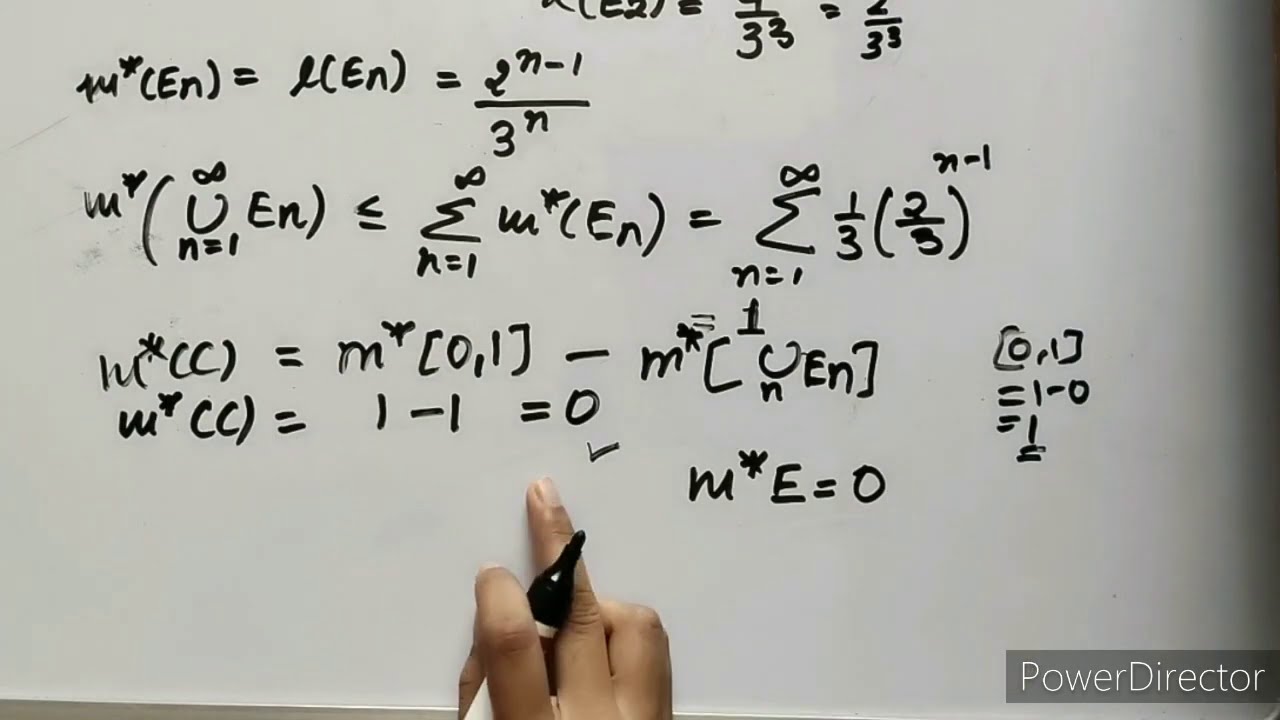 l(E2) = 4/3^3 = 2/3^3
m*(En) = l(En) = 2^(n-1)/3^n
m*(∪_{n=1}^∞ En) ≤ ∑_{n=1}^∞ m*(En) = ∑_{n=1}^∞ 1/3 (2/3)^(n-1)
= 1
m*(C) = m*[0,1] − m*[∪_n En]
m*(C) = 1 − 1 = 0 ✓
[0,1]
= 1-0
= 1
m*E = 0
PowerDirector